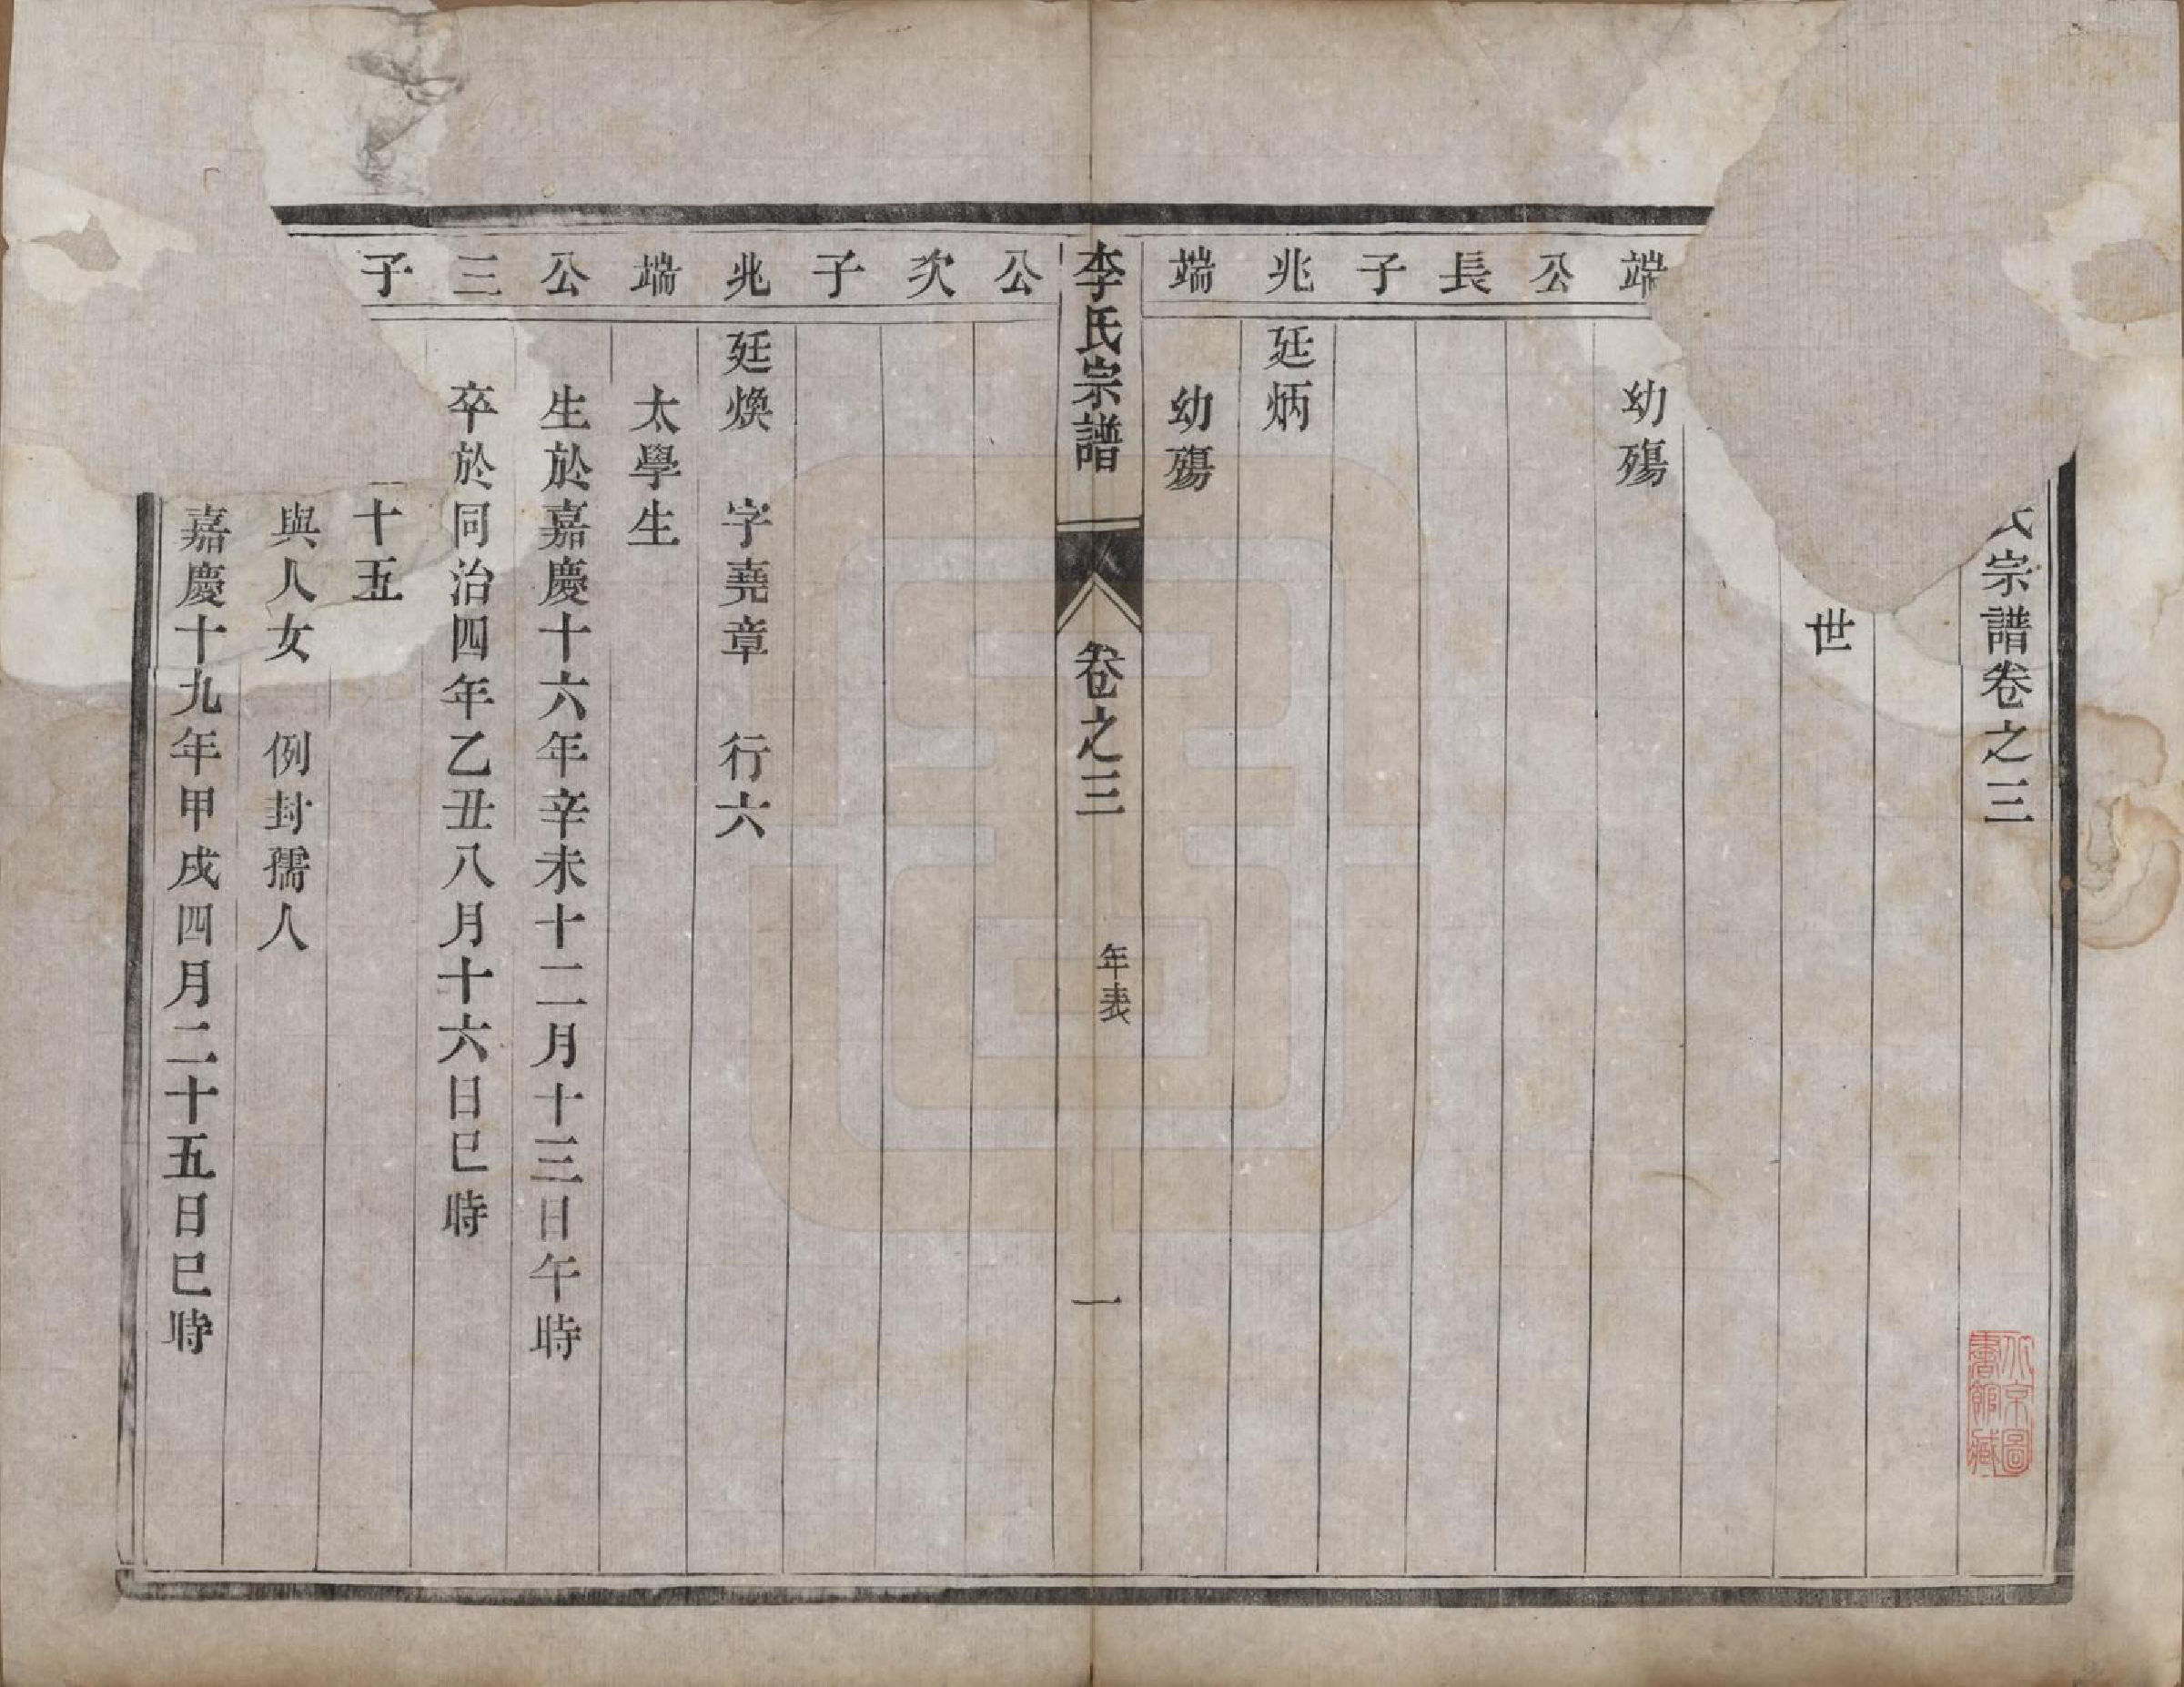 氏宗譜卷之三
世
端
幼殤
公
長
子
兆
廷炳
端
幼殤
李氏宗譜
卷之三
年表
一
公
次
子
兆
廷煥 字堯章 行六
端
太學生
公
生於嘉慶十六年辛未十二月十三日午時
三
卒於同治四年乙丑八月十六日巳時
子
十五
與人女 例封孺人
嘉慶十九年甲戌四月二十五日巳時
京圖
書館藏